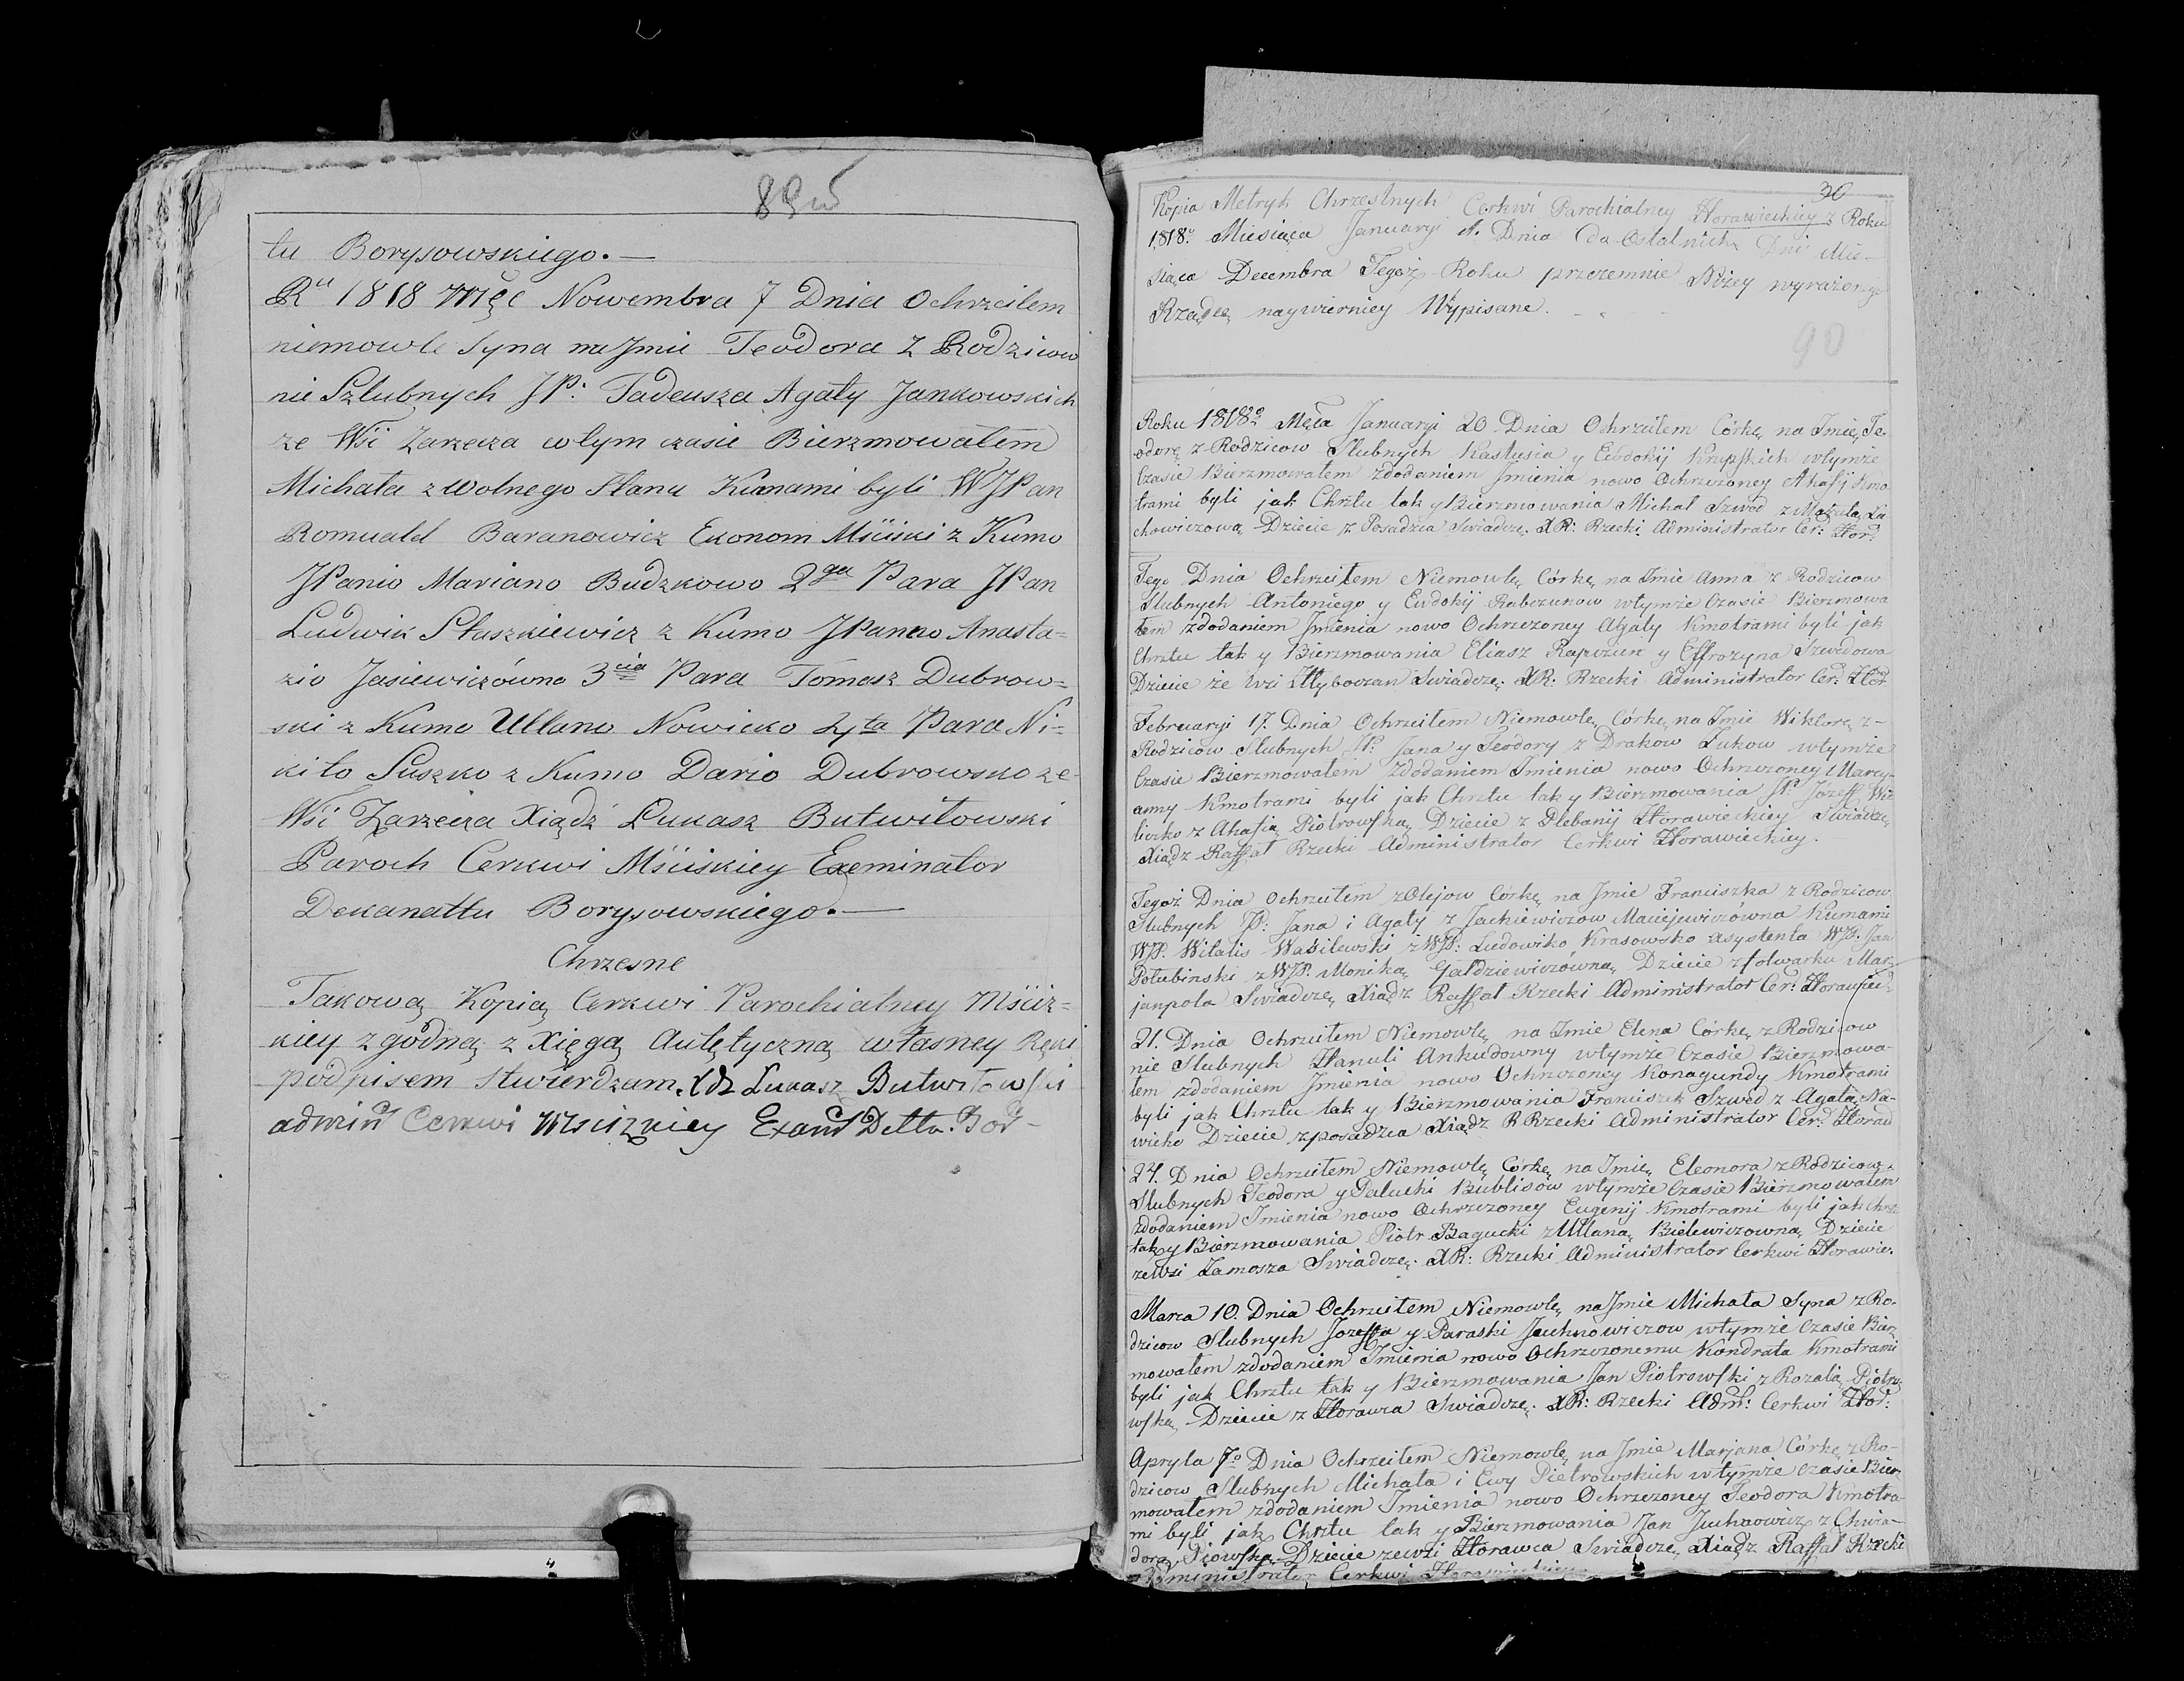 89 об
tu Borysowskiego.—
Ru 1818 Mca Nowembra 7 Dnia Ochrzcilem
niemowle Syna na Jmie Teodora z Rodziców
nie Szlubnych JP: Tadeusza Agaty Jankowskich
ze Wsi Zarzecza wtym czasie Bierzmowałem
Michała z wolnego Stanu Kumami byli WJPan
Romuald Baranowicz Ekonom Mściski z Kumo
JPanio Mariano Budzkowo 2ga Para JPan
Ludwik Staszkiewicz z Kumo JPanno Anasta=
zio Jasiewiczówno 3cia Para Tomasz Dubrow=
ski z Kumo Ullano Nowicko 4ta Para Ni=
kito Suszko z Kumo Dario Dubrowsko ze
Wsi Zarzecza Xiądź Łukasz Butwiłowski
Paroch Cerkwi Mściskiey Exeminator
Dekanattu Borysowskiego.—
Chrzesne
Takową Kopią Cerkwi Parochialney Mściz=
kiey zgodną z Xięgą Autętyczną własney Ręki
podpisem Stwierdzam. Xdz Łukasz Butwiłowski
admin Cerkwi Mscizkiey Exam Dettu. Bor-
30
Kopia Metryk Chrzestnych Cerkwi Parochialney Horawieckiey z Roku
1818o Miesiąca Januaryi 1. Dnia do Ostatnich Dni Mie-
siąca Decembra Tegoż Roku przezemnie Niżey wyrażonego
Rządcę naywierniey Wypisane.
90
Roku 1818o Męca Januaryi 20 Dnia Ochrzciłem Córkę na Jmię Te-
odorę z Rodzicow Slubnych Kastusia y Ewdokij Krupskich wtymże
Czasie Bierzmowałem zdodaniem Jmienia nowo Ochrzczoney Ahafij Kmo
trami byli jak Chrztu tak y Bierzmowania Michał Szwed z Makułą Ła
chowiczową Dziecie z Posadzca Swiadczę. XR: Rzecki Administrator Cer: Hor:
Tego Dnia Ochrzciłem Niemowlę Córkę na Jmie Anna z Rodzicow
Slubnych Antoniego y Ewdokij Rabczunow wtymże Czasie Bierzmowa
łem zdodaniem Jmienia nowo Ochrzczoney Agaty Kmotrami byli jak
Chrztu tak y Bierzmowania Eliasz Rapczun y Effrozyna Szwedowa
Dziecie ze Wsi Hłyboczan Swiadczę. XR: Rzecki Administrator Cer: Hor
Februaryi 17. Dnia Ochrzciłem Niemowlę Córkę na Jmie Wiktorę z-
Rodzicow Slubnych JP: Jana y Teodory z Drakow Żukow wtymże
Czasie Bierzmowałem zdodaniem Jmienia nowo Ochrzczoney Marcy-
anny Kmotrami byli jak Chrztu tak y Bierzmowania JP: Jozeff Wie
liczko z Ahafią Piotrowską Dziecie z Plebanij Horawieckiey Swiadczę
Xiądz Raffał Rzecki Administrator Cerkwi Horawieckiey.
Tegoż Dnia Ochrzciłem zOlejow Córkę na Jmie Franciszka z Rodzicow
Slubnych JP: Jana i Agaty z Jackiewiczow Maciejewiczówna Kumami
WJP. Witalis Wasilewski zWJP: Ludowiko Krasowsko asystenta WJP. Jan
Połubinski zWJP. Moniką Gałdziewiczówną Dziecie z folwarku Mar-
janpola Swiadczę Xiądz Raffał Rzecki Administrator Cer: Horawied:
21. Dnia Ochrzciłem Niemowlę na Jmie Elena Córkę z Rodzicow
nie Slubnych Hanuli Ankudowny wtymże Czasie Bierzmowa-
łem zdodaniem Jmienia nowo Ochrzczoney Konagundy Kmotrami
byli jak Chrztu tak y Bierzmowania Franciszek Szwed z Agatą No-
wicko Dziecie zposadzca Xiądz R Rzecki Administrator Cer: Horaw
24. Dnia Ochrzciłem Niemowlę Córkę na Jmię Eleonora z Rodzicow
Slubnych Teodora y Paluchi Bublisów wtymże Czasie Bierzmowałem
zdodaniem Jmienia nowo Ochrzczoney Eugenij Kmotrami byli jak Chrz:
tak y Bierzmowania Piotr Bagucki zUllaną Bielewiczowną Dziecie
zeWsi Zamosza Swiadczę. XR: Rzecki Administrator Cerkwi Horawie.
Marca 10. Dnia Ochrzciłem Niemowlę na Jmie Michała Syna z Ro-
dzicow Slubnych Jozeffa y Paraski Juchnowiczow wtymże Czasie Bier-
mowałem zdodaniem Jmienia nowo Ochrzczonemu Kondrata Kmotrami
byli jak Chrztu tak y Bierzmowania Jan Piotrowski z Rozalą Piotro-
wską Dziecie z Horawca Swiadczę. XR: Rzecki Adm: Cerkwi Hor:
Apryla 7o Dnia Ochrzciłem Niemowlę na Jmie Marjana Córkę z Ro-
dzicow Slubnych Michała i Ewy Pietrowskich wtymże czasie Bier-
mowałem zdodaniem Jmienia nowo Ochrzczoney Teodora Kmotra-
mi byli jak Chrztu tak y Bierzmowania Jan Juchnowicz z Chwia-
dorą Dziecie zewsi Horawca Swiadczę Xiądz Raffał Rzecki
Administrator Cerkwi Horawieckiey